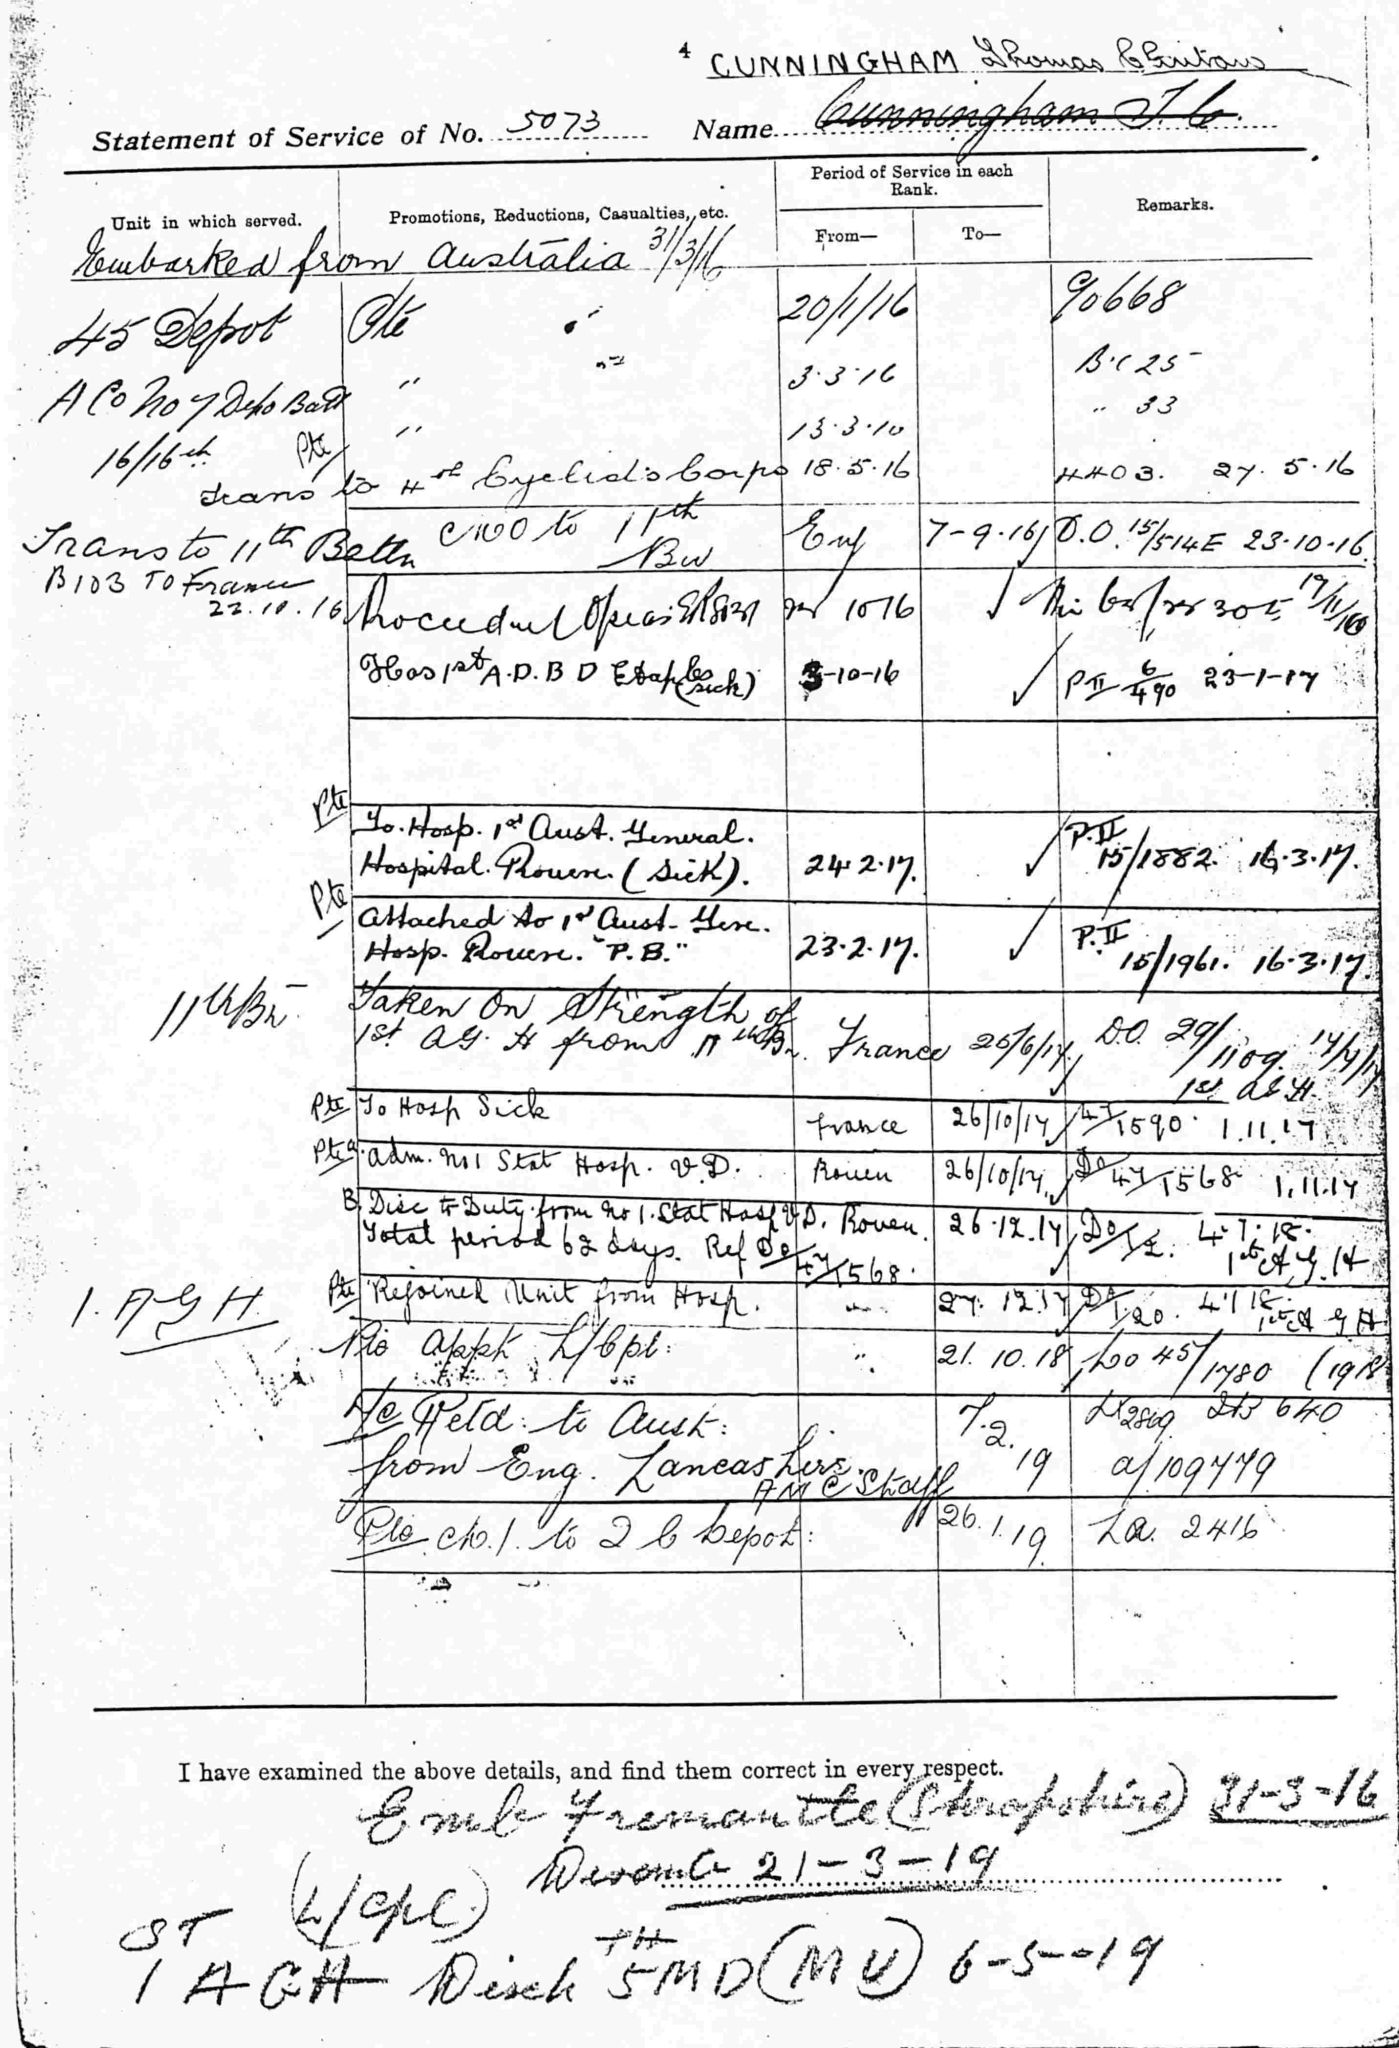 4 CUNNINGHAM Thomas
Statement of Service of No. 5073 Name Cunningham T C.
Unit in which served. Promotions, Reductions, Casualties, etc. Period of Service in each Rank. Remarks.
From— To—
Embarked from Australia 31/3/16
45 Depot Pte " 20/1/16 90668
A Co No 7 Depo Batt " " 3.3.16 B.C 25
16/16th Pte " 13.3.16 " 33
trans to 4th Cyclist Corps 18.5.16 4403. 27.5.16
Trans to 11th Battn to 11th Bn Eng 7-9-16 D.O. 15/514E 23-10-16
B103 To France
22.10.16 Proceeded O'Seas 10 16 19/11/16
Hos 1st A.D.B D Etaples (sick) 3-10-16 P II 6/490 23-1-17
Pte To. Hosp. 1st Aust. General.
Hospital. Rouen. (sick). 24.2.17. P.II 15/1882. 16.3.17.
Pte Attached to 1st Aust. Gene.
Hosp. Rouen. "P.B." 23.2.17. P.II 15/1961. 16.3.17.
11th Bn Taken On Strength of
1st A G. H from 11th Bn. France 25/6/17 D.O. 29/1109.
1st A G H.
Pte To Hosp Sick France 26/10/17 47/1590. 1.11.17
Pte a. Adm. No 1 Stat Hosp. V.D. Rouen 26/10/17 Do 47/1568 1.11.17
B. Disc to Duty from No 1. Stat Hosp V.D. Rouen. 26.12.17
Total period 62 days. Ref Do 47/1568. 1st A.G.H
1. A G H. Pte Rejoined Unit from Hosp. " 27.12.17 Do 1/20. 1st A G H
Pte appt L/Cpl: " 21.10.18 45/1780 (1918
Retd: to Aust: 7.2.19 640
from Eng. Lancashire. a/109779
A M C Staff
Pte to 2 C Depot: 26.1.19 2416
I have examined the above details, and find them correct in every respect.
Emb Fremantle (Shropshire) 31-3-16
Disemb 21-3-19
(L/Cpl.)
1 ST A G H Disch 5 TH M D (M U) 6-5-19